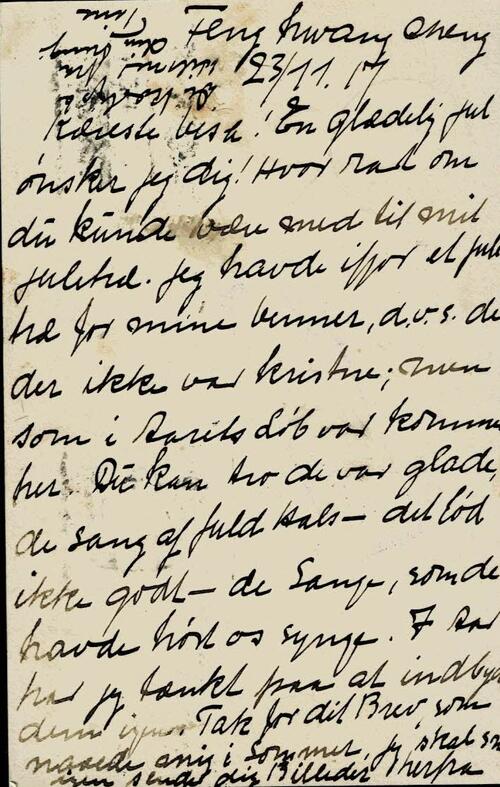 Feng hwang cheng
23/11. 17
Kæreste Vesa! En glædelig jul
ønsker jeg dig! Hvor rad om
du kunde være med til mit
juletræ. Jeg havde ifjor et jule
træ for mine venner, d.v.s. de
der ikke var kristne; men
som i Aarets Løb var kommen
her. Du kan tro de var glade,
de sang af fuld Hals – det lød
ikke godt – de Sange, som de
havde hørt os synge. I Aar
har jeg tænkt paa at indbyde
dem igen. Tak for dit Brev, som
naaede mig i Sommer, jeg skal
igen sende dig Billeder herfra